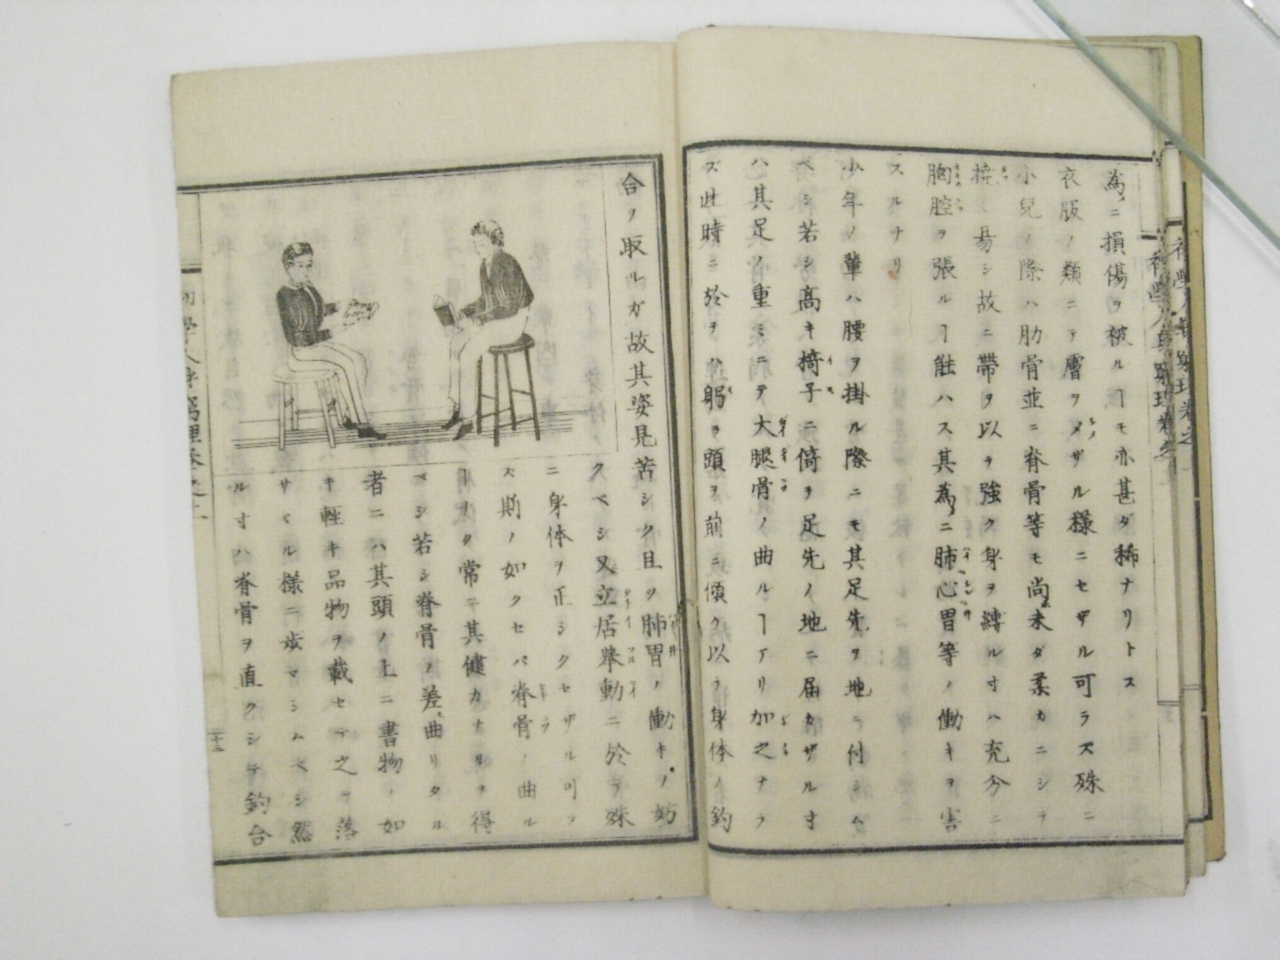 為ニ損傷ヲ被ルヿモ亦甚ダ稀ナリトス
衣服ノ類ニテ膚ヲメザル様ニセザル可ラズ殊ニ
小兒ノ際ハ肋骨並ニ脊骨等モ尚未ダ柔カニシテ
撓ミ易シ故ニ帶ヲ以テ強ク身ヲ縛ル寸ハ充分ニ
胸腔ヲ張ルヿ能ハス其為ニ肺心胃等ノ働キヲ害
スルナリ
少年ノ輩ハ腰ヲ掛ル際ニモ其足先ヲ地ニ付シム
ベシ若シ高キ椅子ニ倚テ足先ノ地ニ届カザル寸
ハ其足ノ重ミニテ大腿骨ノ曲ルヿアリ加之ナラ
ズ此時ニ於テハ躬ラ頭ヲ前ニ傾ク以テ身体ノ釣
合ノ取ルガ故其姿見苦シク且ツ肺胃ノ働キノ妨
クベシ又立居擧動ニ於テ殊
ニ身体ヲ正シクセザル可ラ
ズ則ノ如クセバ脊骨ノ曲ル
ヿヲク常ニ其健カナルヲ得
ベシ若シ脊骨ノ差曲リタル
者ニハ其頭ノ上ニ書物ノ如
キ輕キ品物ヲ載セテ之ヲ落
サヾル様ニ歩マシムベシ然
ル寸ハ脊骨ヲ直クシテ釣合
初學人身窮理卷之上